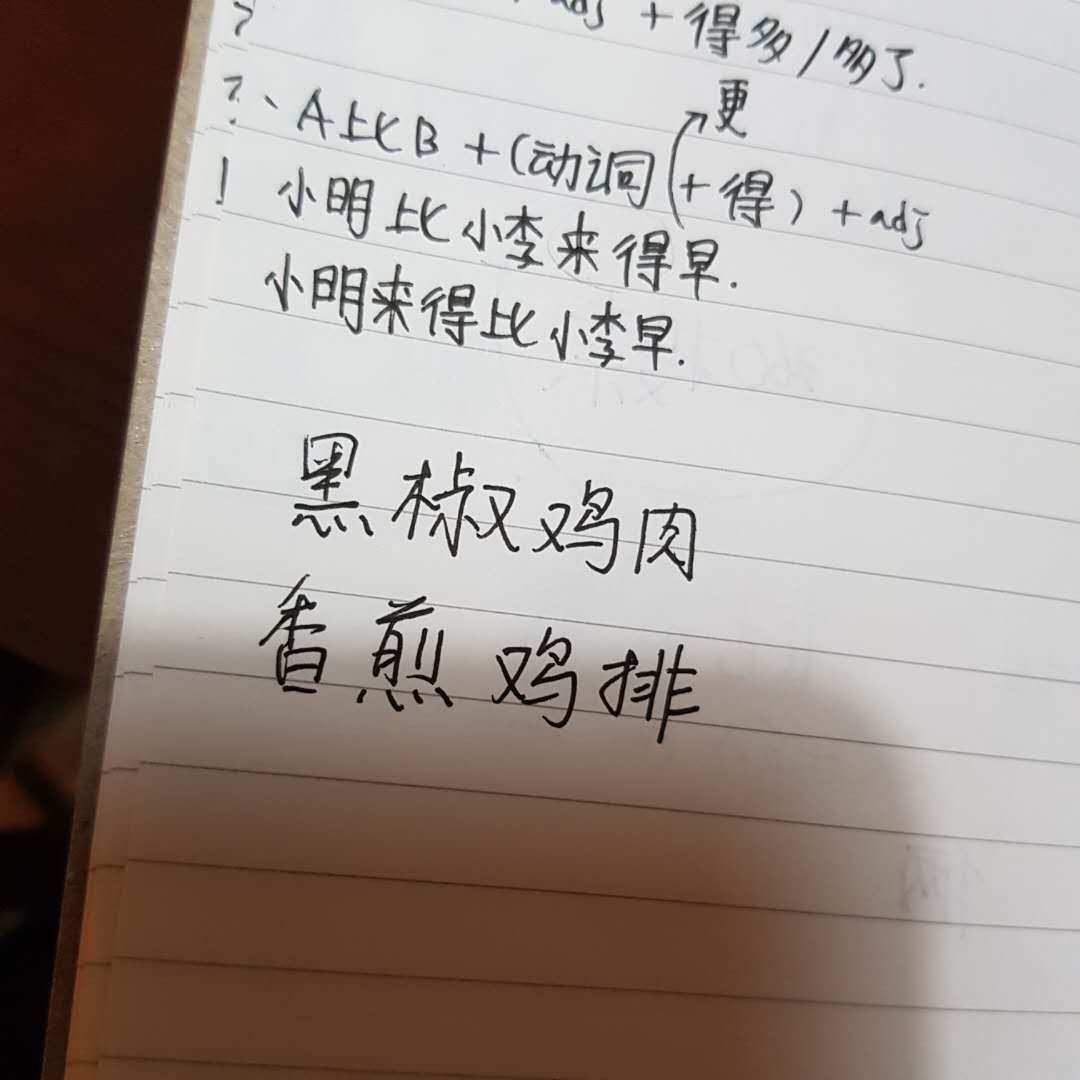 adj + 得多/多了.
更
2、A比B + (动词(+ 得) + adj
小明比小李来得早.
小明来得比小李早.
黑椒鸡肉
香煎鸡排